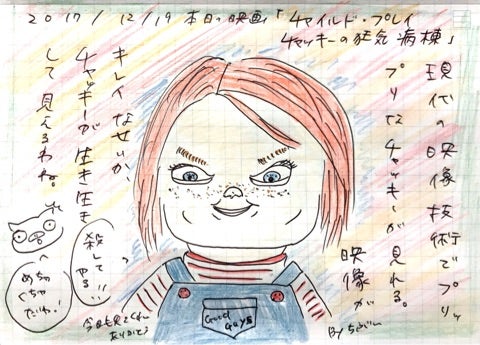 2017/12/19 本日の映画「チャイルド・プレイ
チャッキーの狂気病棟」
現代の映像技術でプリッ
プリなチャッキーが見れる。
映像が
キレイなせいか、
チャッキーが生き生き
して見えるわね。
殺してやる!!
めちゃ
くちゃ
だわ!
Good
Guys
今日も見てくれて
ありがとう